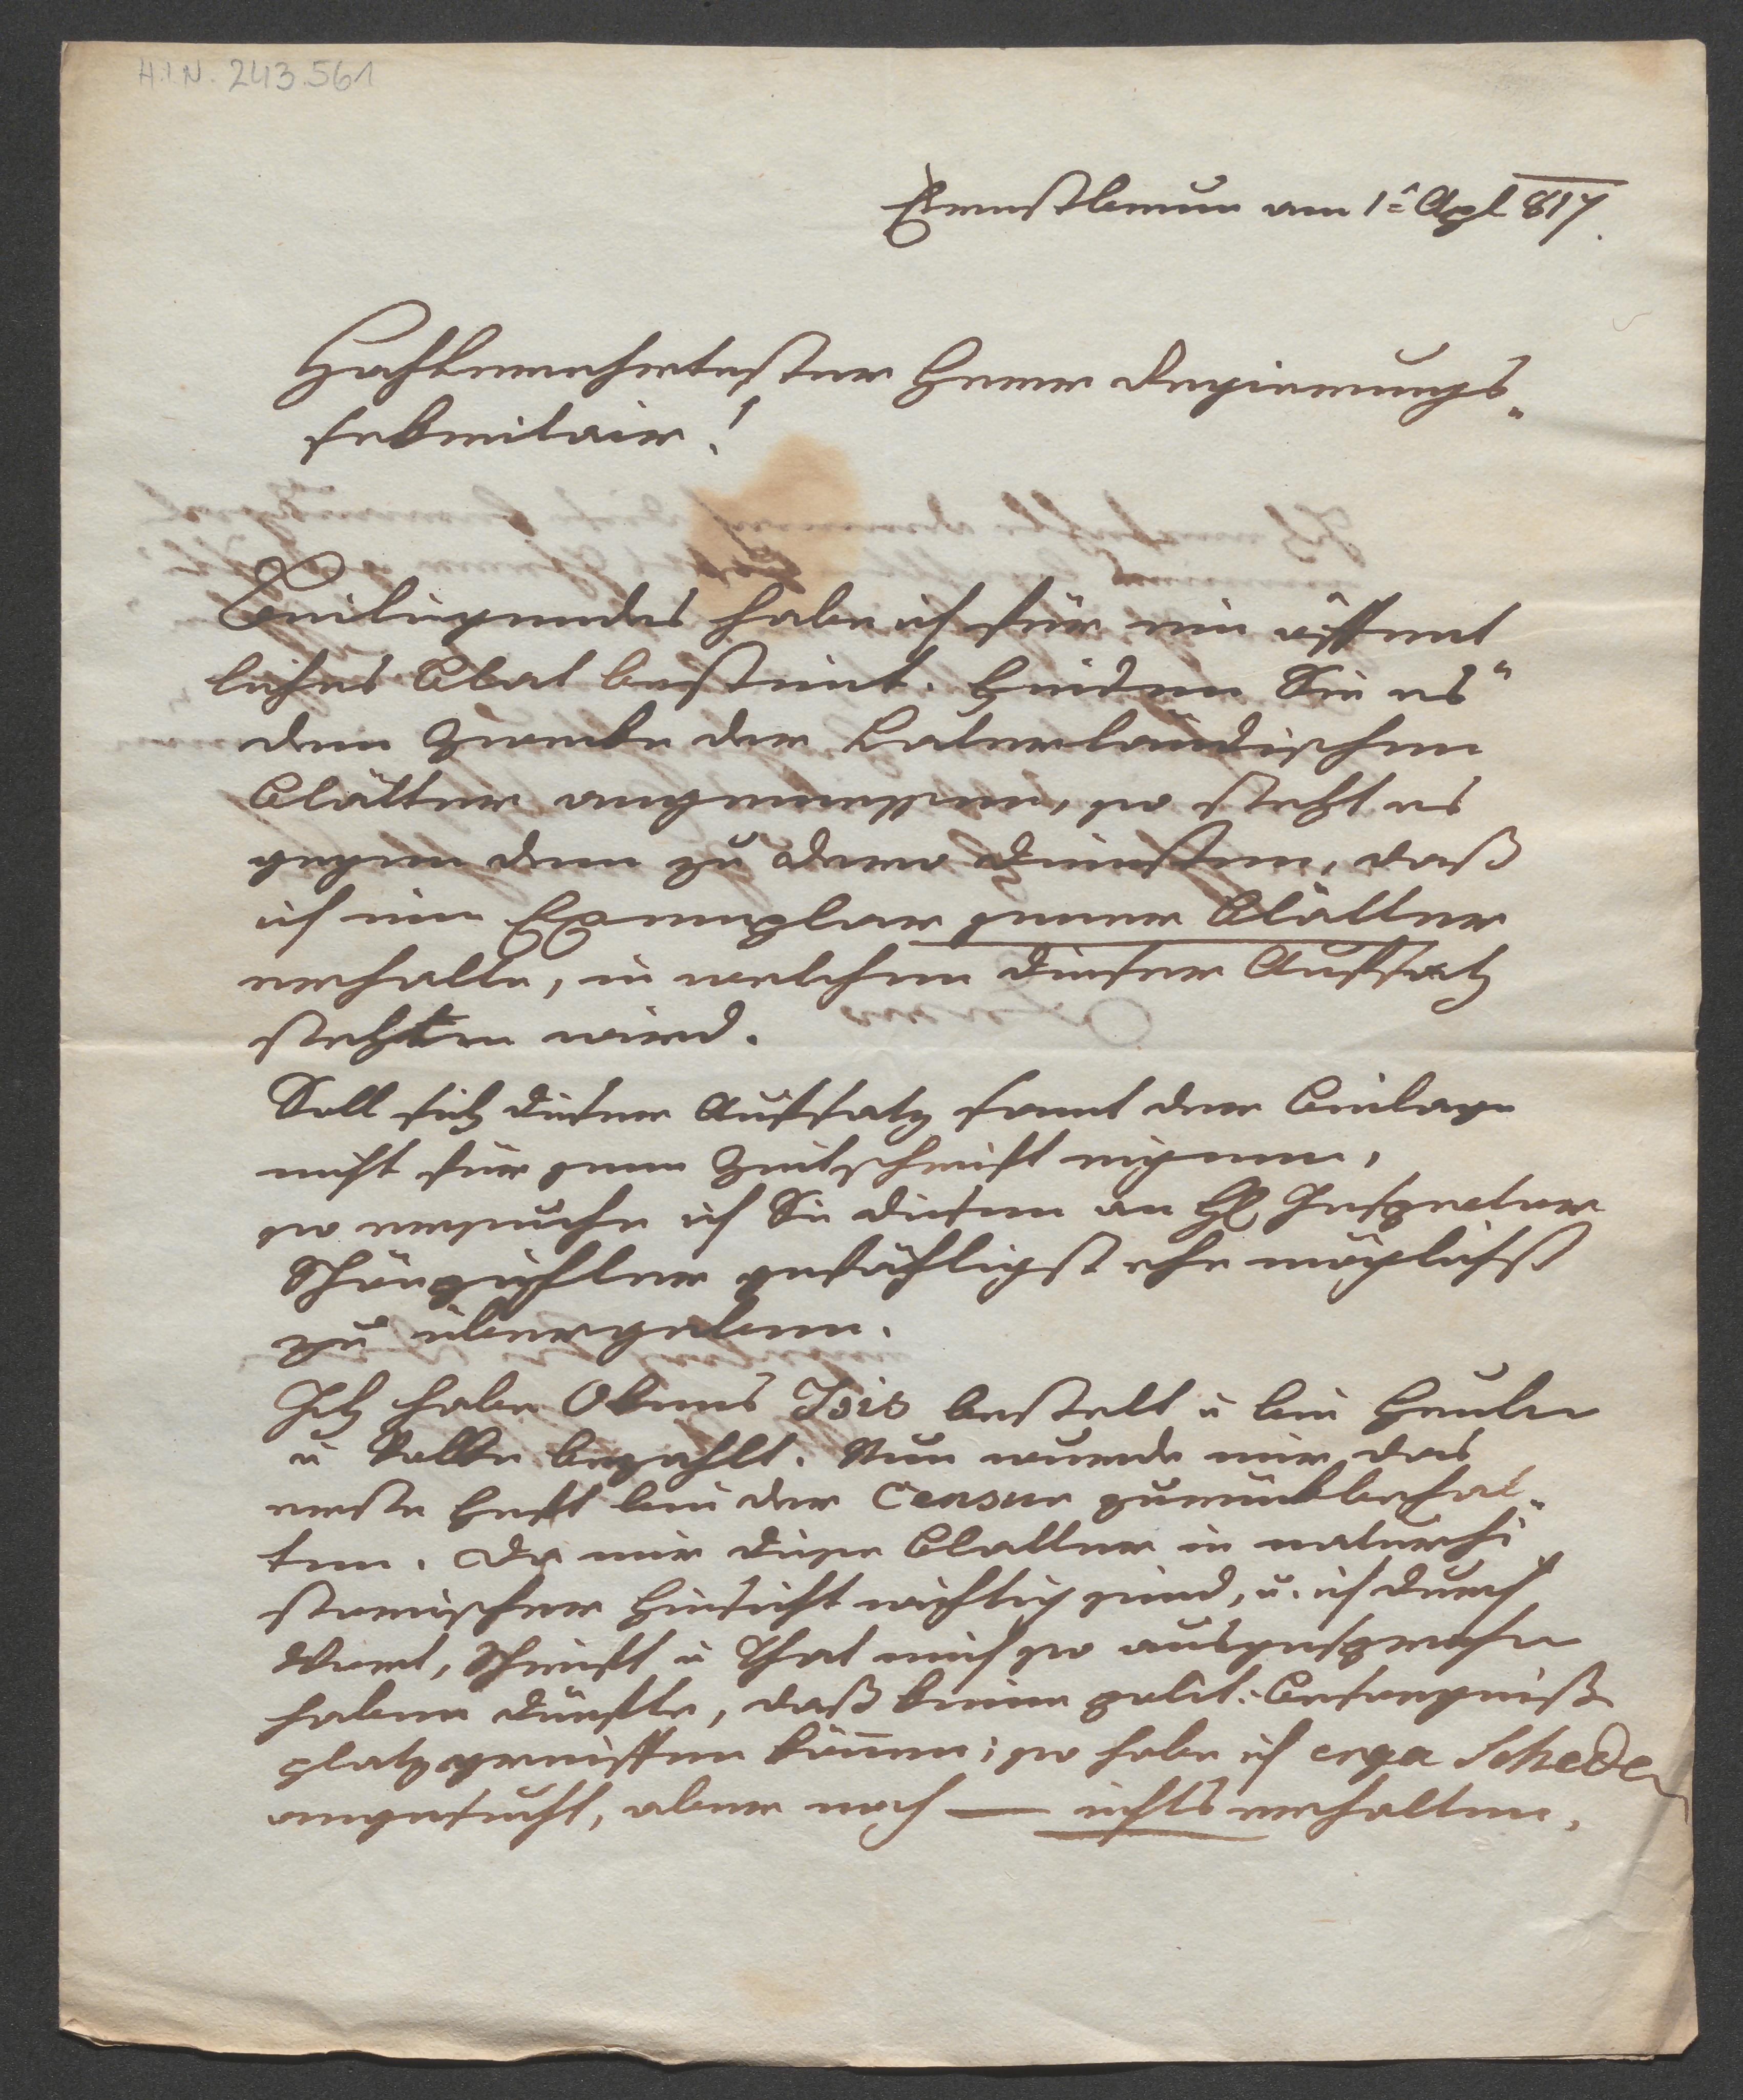 H.I.N. 243.561
Ernstbrun am 1ᵗ Apl 817.
Hochverehrtester Herr Regierungs„
sekretair!
Beiliegendes habe ich für ein öffent„
liches Blat bestimt. Finden Sie es
dem Zwecke der Vaterländischen
Blätter angemessen, so steht es
gegen dem zu dero Diensten, daß
ich ein Exemplar jener Blätter
erhalte, in welchen dieser Aufsatz
stehen wird.
Soll sich dieser Aufsatz samt der Beilage
nicht für jene Zeitschrift eignen,
so ersuche ich Sie diesen an H Inspector
Schönpichler gefähligst ehe möglichst
zu übergeben.
Ich habe Okens Isis bestelt u bei Heubn
u Volke bezahlt. Nun wurde mir das
erste Heft bei der Censur zurückbehal„
ten. Da mir diese Blatter in naturhi
storischer Hinsicht wichtig sind, u. ich durch
Wort, Schrift u That mich so ausgesprochen
haben dürfte, daß keine polit: Besorgniß
platzgreiffen könne; so habe ich erga Scheda
angesucht, aber noch — ichts erhalten.